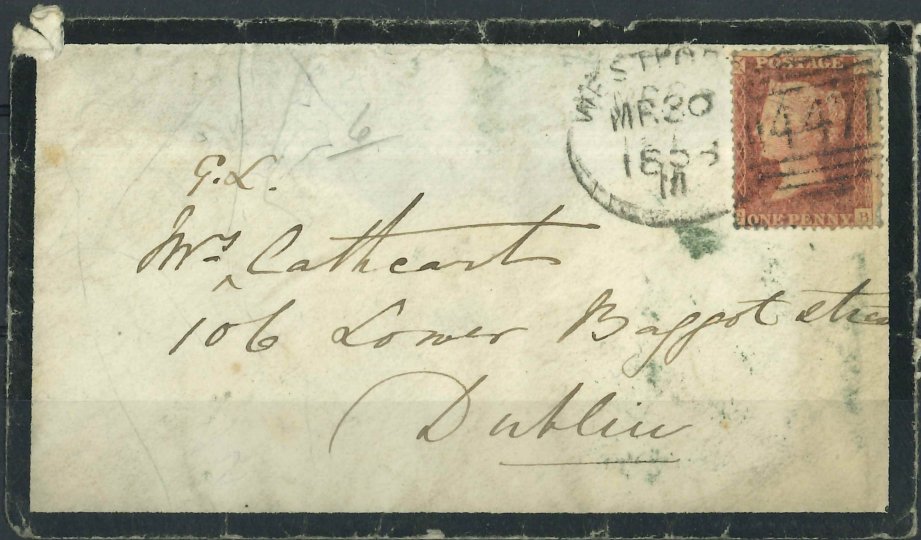 WESTPOR
MR20
185
POSTAGE
447
ONE PENNY B
6
G.L.
Mrs ^ Cathcart
106 Lower Baggot stree
Dublin